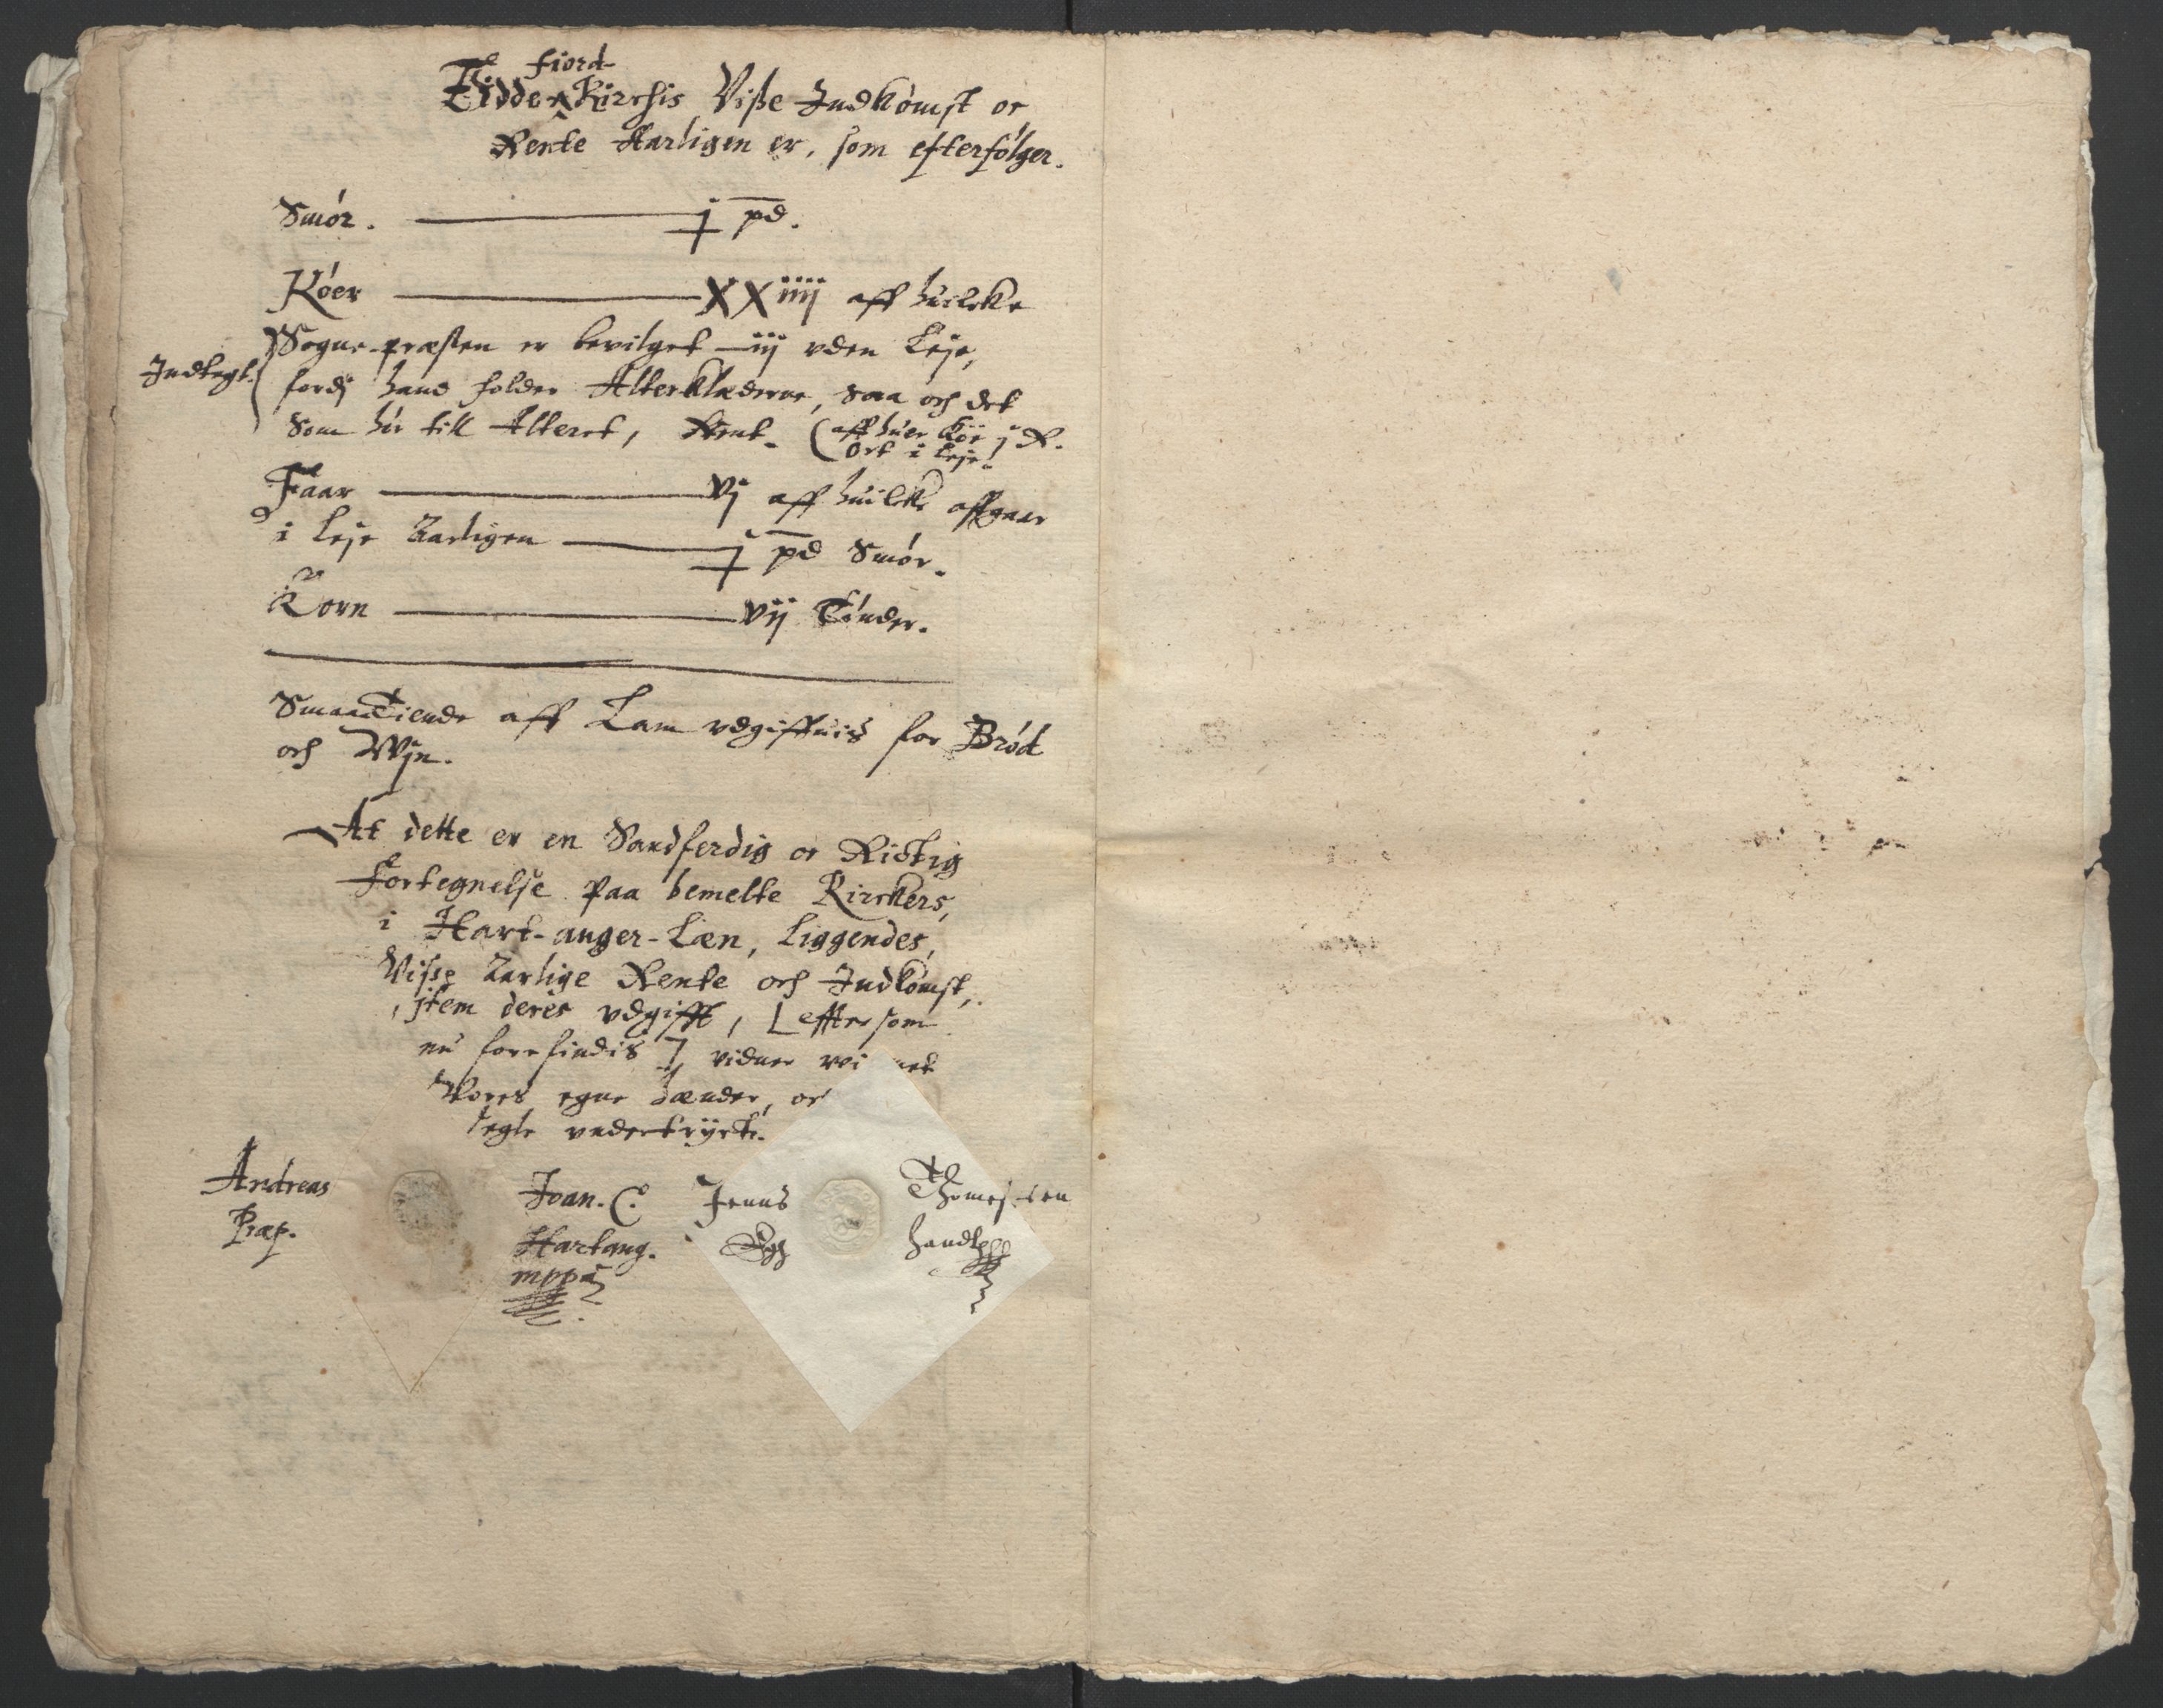 fiord-
Eidde Kirchis Viße Indkömst oc
Rente Aarligen er, som efterfölger.
Smör. j pd.
Köer XXiiij aff huilcke
Sogne-præsten er bevilget iij vden Leje,
Indtegt.
fordj hand holder Alterklæderne, saa och det
som hör till Alteret, Reent. (aff huerKöe j R.
Ort i leje.
Faar vj aff huilcke affgaar
i leje Aarligen j pd Smör.
Korn vij Tönder.
Smaa Tiende aff Lam vdgiffuis for Bröd
och Wjn.
At dette er en Sandferdig oc Rictig
fortegnelse paa bemelte Kirckers,
i Hart-anger-Læn, liggendes,
Viße Aarlige Rente och Indkomst,
jtem deres vdgifft, efftersom
nu forefindis, vidner wi met
Vores egne Hænder, oc
segle vndertryckt.
Andreas
Præp.
Joan. C.
Hartang.
mppa
Jenns Thomessen
Egh handt